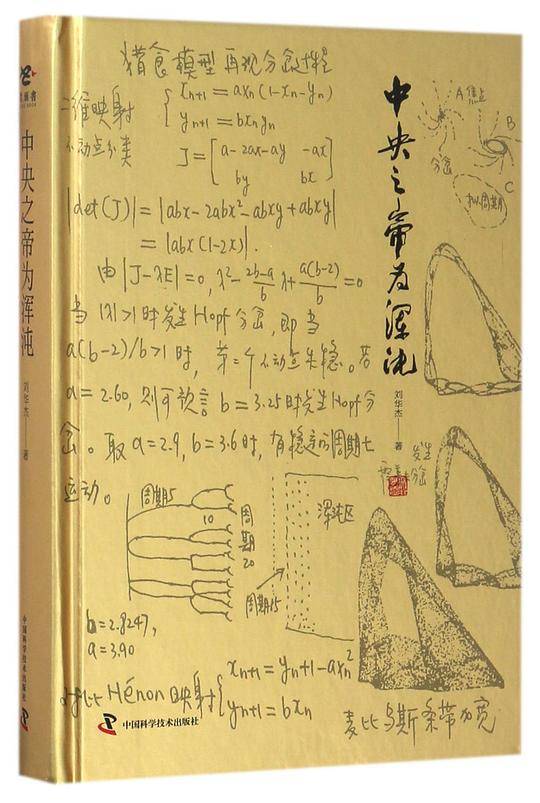 中央之帝为浑沌
刘华杰
著
中国科学技术出版社
猎食模型再现分岔过程
二维映射
{ xn+1 = axn(1-xn-yn)
yn+1 = bxnyn
不动点分类
J = [ a-2ax-ay -ax
by bx ]
|det(J)| = |abx-2abx²-abxy+abxy|
= |abx(1-2x)|.
由|J-λE|=0, λ²-(2b-a)/b λ+a(b-2)/b=0
当|λ|>1时发生Hopf分岔,即当
a(b-2)/b>1时,第二个不动点失稳。若
a=2.60,则可预言b=3.25时发生Hopf分
岔。取a=2.9,b=3.6时,有稳定的周期七
运动。
中央之帝为浑沌
刘华杰
著
A焦点
B
分岔
C
拟周期
发生
分岔
周期5
10
周期20
浑沌区
周期15
b=2.8247,
a=3.90
对比Hénon映射{ xn+1=yn+1-axn²
yn+1=bxn
麦比乌斯条带加宽
中国科学技术出版社